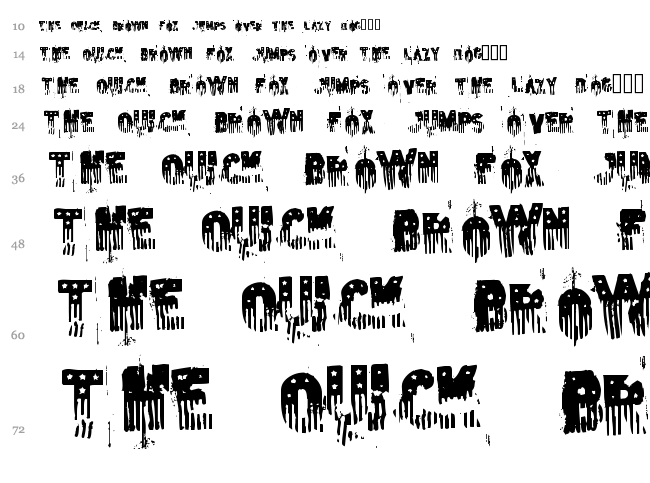 10 THE QUICK BROWN FOX JUMPS OVER THE LAZY DOG
14 THE QUICK BROWN FOX JUMPS OVER THE LAZY DOG
18 THE QUICK BROWN FOX JUMPS OVER THE LAZY DOG
24 THE QUICK BROWN FOX JUMPS OVER THE
36 THE QUICK BROWN FOX JU
48 THE QUICK BROWN F
60 THE QUICK BROW
72 THE QUICK BR